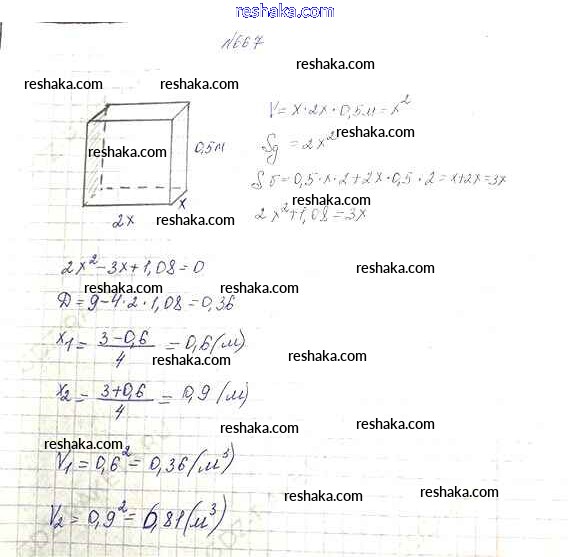 reshaka.com
N667
reshaka.com
reshaka.com
reshaka.com
V = x · 2x · 0,5м = x²
reshaka.com
0,5м
Sд = 2x²
reshaka.com
Sб = 0,5 · x · 2 + 2x · 0,5 · 2 = x + 2x = 3x
reshaka.com
x
2x
reshaka.com
2x² + 1,08 = 3x
2x² - 3x + 1,08 = 0
reshaka.com
reshaka.com
reshaka.com
D = 9 - 4 · 2 · 1,08 = 0,36
x₁ = (3 - 0,6)/4 = 0,6 (м)
reshaka.com
reshaka.com
x₂ = (3 + 0,6)/4 = 0,9 (м)
reshaka.com
reshaka.com
reshaka.com
V₁ = 0,6² = 0,36 (м³)
reshaka.com
reshaka.com
V₂ = 0,9² = 0,81 (м³)
reshaka.com